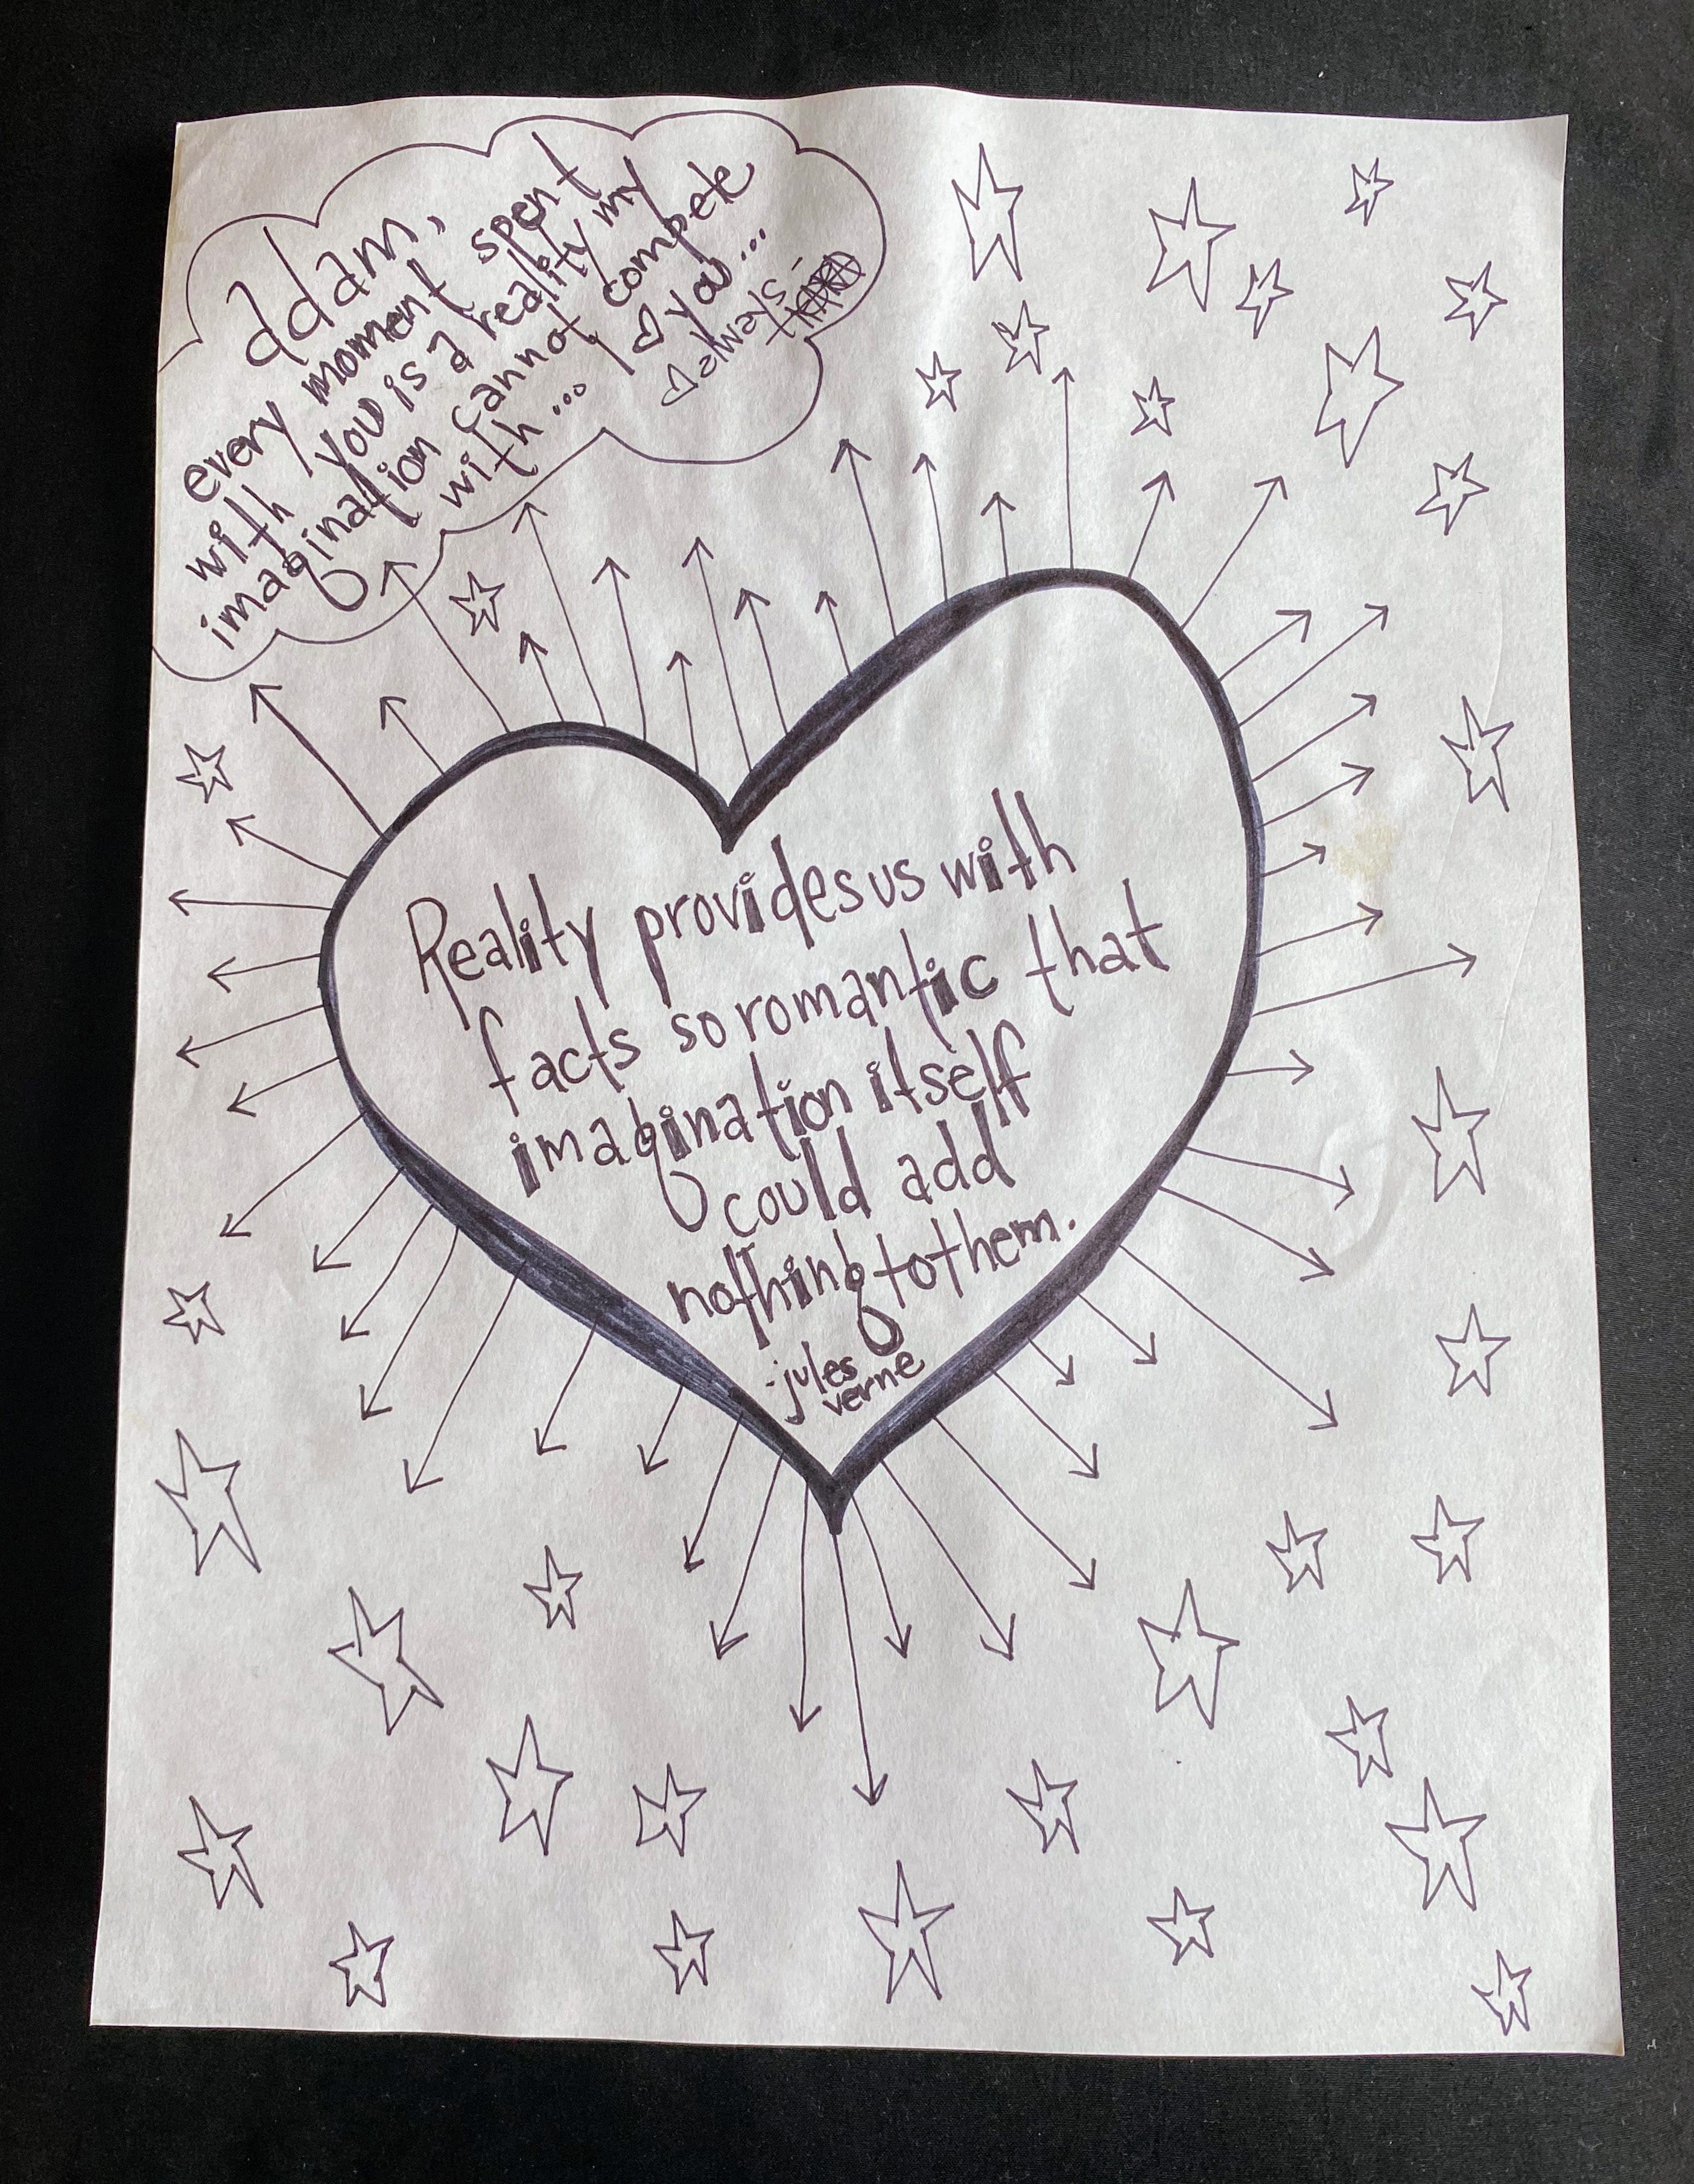 adam,
every moment spent
with you is a reality my
imagination cannot compete
with... I ♡ you...
♡ always-
Reality provides us with
facts so romantic that
imagination itself
could add
nothing to them.
-jules
verne